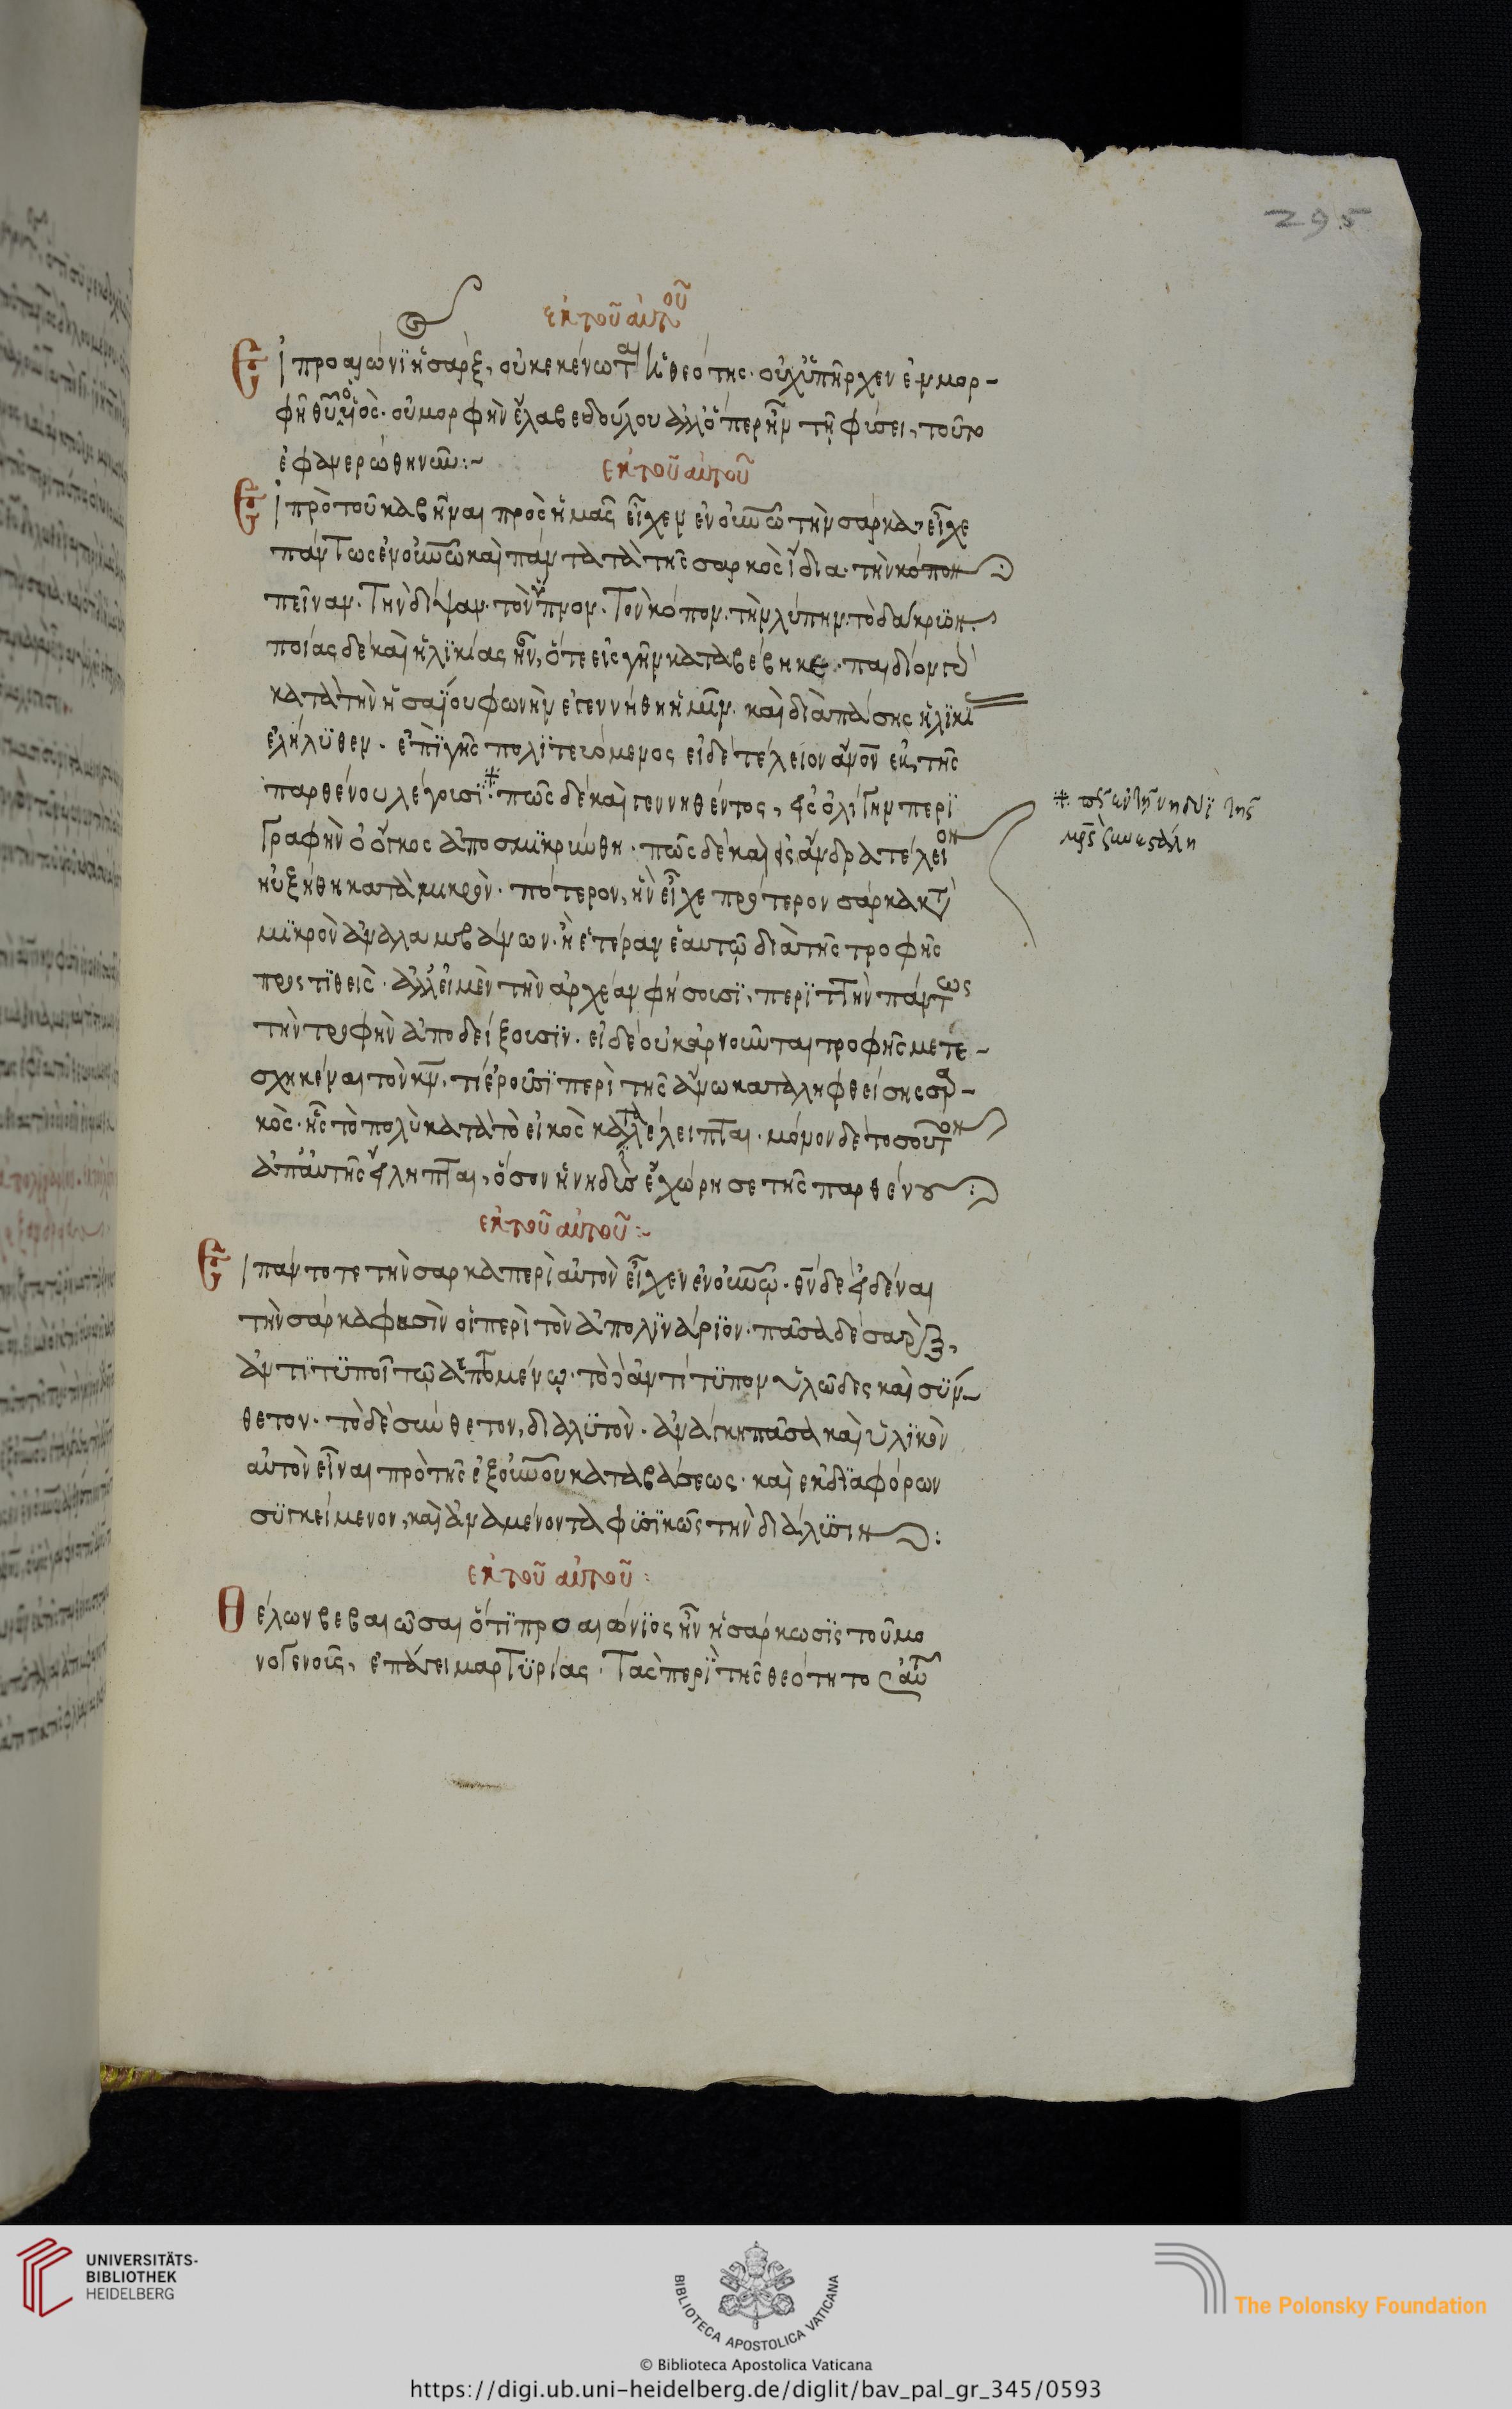 295
ἐκ τοῦ αὐτοῦ
Εἰ προαιώνϊ ἡ σάρξ, οὐ κεκένωται ἡ θεότης· οὐχ ὑπῆρχεν ἐν μορ-
φῆ θυ ὁ υἱὸς· οὐ μορφὴν ἔλαβε δούλου ἀλλ' ὅπερ ἦν τῇ φύσει, τοῦτο
ἐφανερώθη νῦν:~
ἐκ τοῦ αὐτοῦ
Εἰ πρὸ τοῦ καβῆναι πρὸς ἡμᾶς εἶχεν ἐν οὐνω τὴν σάρκα, εἶχε
πάντως ἐν οὐνω καὶ πάντα τὰ τῆς σαρκὸς ἴδια· τὴν κόπον
πεῖναν. Τὴν δίψαν· τὸν ὕπνον. Τὸν κόπον· τὴν λύπην· τὸ δακρϋον·
ποίας δὲ καὶ ἡλϊκίας ἦν, ὅτε εἰς γῆν καταβέβηκε· παιδίον
κατὰ τὴν ἡσαΐου φωνὴν ἐγεννήθη ἡμῖν· καὶ διὰ πάσης ἡλϊκί
ἐλήλϋθεν· ἐπὶ γῆς πολϊτευόμενος εἰ δὲ τέλειον ανον ἐκ τῆς
παρθένου λέγουσϊ· πῶς δὲ καὶ γεννηθέντος, εἰς ὀλίγην περϊ
γραφὴν ὁ ὄγκος ἀποσμϊκρύνθη· πῶς δὲ καὶ εἰς ἄνδρα τέλειον
ηὐξήθη κατὰ μικρὸν· πότερον, ἣν εἶχε πρότερον σάρκα κτ
μϊκρὸν ἀναλαμβάνων· ἢ ἑτέραν ἑαυτῷ διὰ τῆς τροφῆς
προςτϊθεὶς· ἀλλ' εἰ μὲν τὴν ἀρχέαν φήσουσϊ, περϊττὴν πάντως
τὴν τροφὴν ἀποδείξουσϊν· εἰ δὲ οὐκ ἀρνοῦνται τροφῆς μετε-
σχηκέναι τὸν κν, τί ἐροῦσϊ περὶ τῆς ἄνω καταληφθείσης σαρ-
κὸς· ἧς τὸ πολὺ κατὰ τὸ εἰκὸς καταλέλειπται· μόνον δὲ τοσοῦτον
ἀπ' αὐτῆς εἴληπται, ὅσον ἡ νηδὺς ἐχώρησε τῆς παρθένου:
ἐκ τοῦ αὐτοῦ:~
Εἰ πάντοτε τὴν σάρκα περὶ αὐτὸν εἶχεν ἐν οὐνῷ· θν δὲ εἰδέναι
τὴν σάρκα φασὶν οἱ περὶ τὸν ἀπολϊνάρϊον· πᾶσα δὲ σαρὲξ,
ἀντϊτϋποῖ τῷ ἁπτομένῳ· τὸ δὲ ἀντίτϋπον ὑλῶδες καὶ σϋν
θετον· τὸ δὲ σύνθετον, διαλϋτὸν· ἀνάγκη πᾶσα καὶ ὑλϊκὸν
αὐτὸν εἶναι πρὸ τῆς ἐξ οὐνοῦ καταβάσεως· καὶ ἐκ δϊαφόρων
σϋγκείμενον, καὶ ἀναμένοντα φϋσϊκῶς τὴν διάλϋσιν:
ἐκ τοῦ αὐτοῦ:
Θέλων βεβαιῶσαι ὅτϊ προαιώνϊος ἦν ἡ σάρκωσϊς τοῦ μο
νογενοῦς, ἐπάγει μαρτϋρίας· Τὰς περὶ τῆς θεότητος αὐτ
UNIVERSITÄTS-
BIBLIOTHEK
HEIDELBERG
BIBLIOTECA APOSTOLICA VATICANA
The Polonsky Foundation
© Biblioteca Apostolica Vaticana
https://digi.ub.uni-heidelberg.de/diglit/bav_pal_gr_345/0593